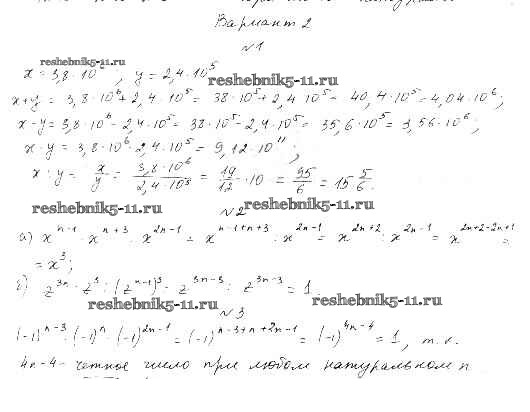 Вариант 2
№1
reshebnik5-11.ru
x = 3,8 · 10⁶, y = 2,4 · 10⁵
reshebnik5-11.ru
x+y = 3,8 · 10⁶ + 2,4 · 10⁵ = 38 · 10⁵ + 2,4 · 10⁵ = 40,4 · 10⁵ = 4,04 · 10⁶;
x - y = 3,8 · 10⁶ - 2,4 · 10⁵ = 38 · 10⁵ - 2,4 · 10⁵ = 35,6 · 10⁵ = 3,56 · 10⁶;
x · y = 3,8 · 10⁶ · 2,4 · 10⁵ = 9,12 · 10¹¹;
x : y = x/y = 3,8 · 10⁶/2,4 · 10⁵ = 19/12 · 10 = 95/6 = 15 5/6.
reshebnik5-11.ru
№2
reshebnik5-11.ru
а) xⁿ⁻¹ · xⁿ⁺³ : x²ⁿ⁻¹ = xⁿ⁻¹⁺ⁿ⁺³ : x²ⁿ⁻¹ = x²ⁿ⁺² : x²ⁿ⁻¹ = x²ⁿ⁺²⁻²ⁿ⁺¹ =
= x³;
z³ⁿ : z³ : (zⁿ⁻¹)³ = z³ⁿ⁻³ : z³ⁿ⁻³ = 1.
reshebnik5-11.ru
reshebnik5-11.ru
№3
(-1)ⁿ⁻³ · (-1)ⁿ · (-1)²ⁿ⁻¹ = (-1)ⁿ⁻³⁺ⁿ⁺²ⁿ⁻¹ = (-1)⁴ⁿ⁻⁴ = 1, т.к.
4n-4 - четное число при любом натуральном n